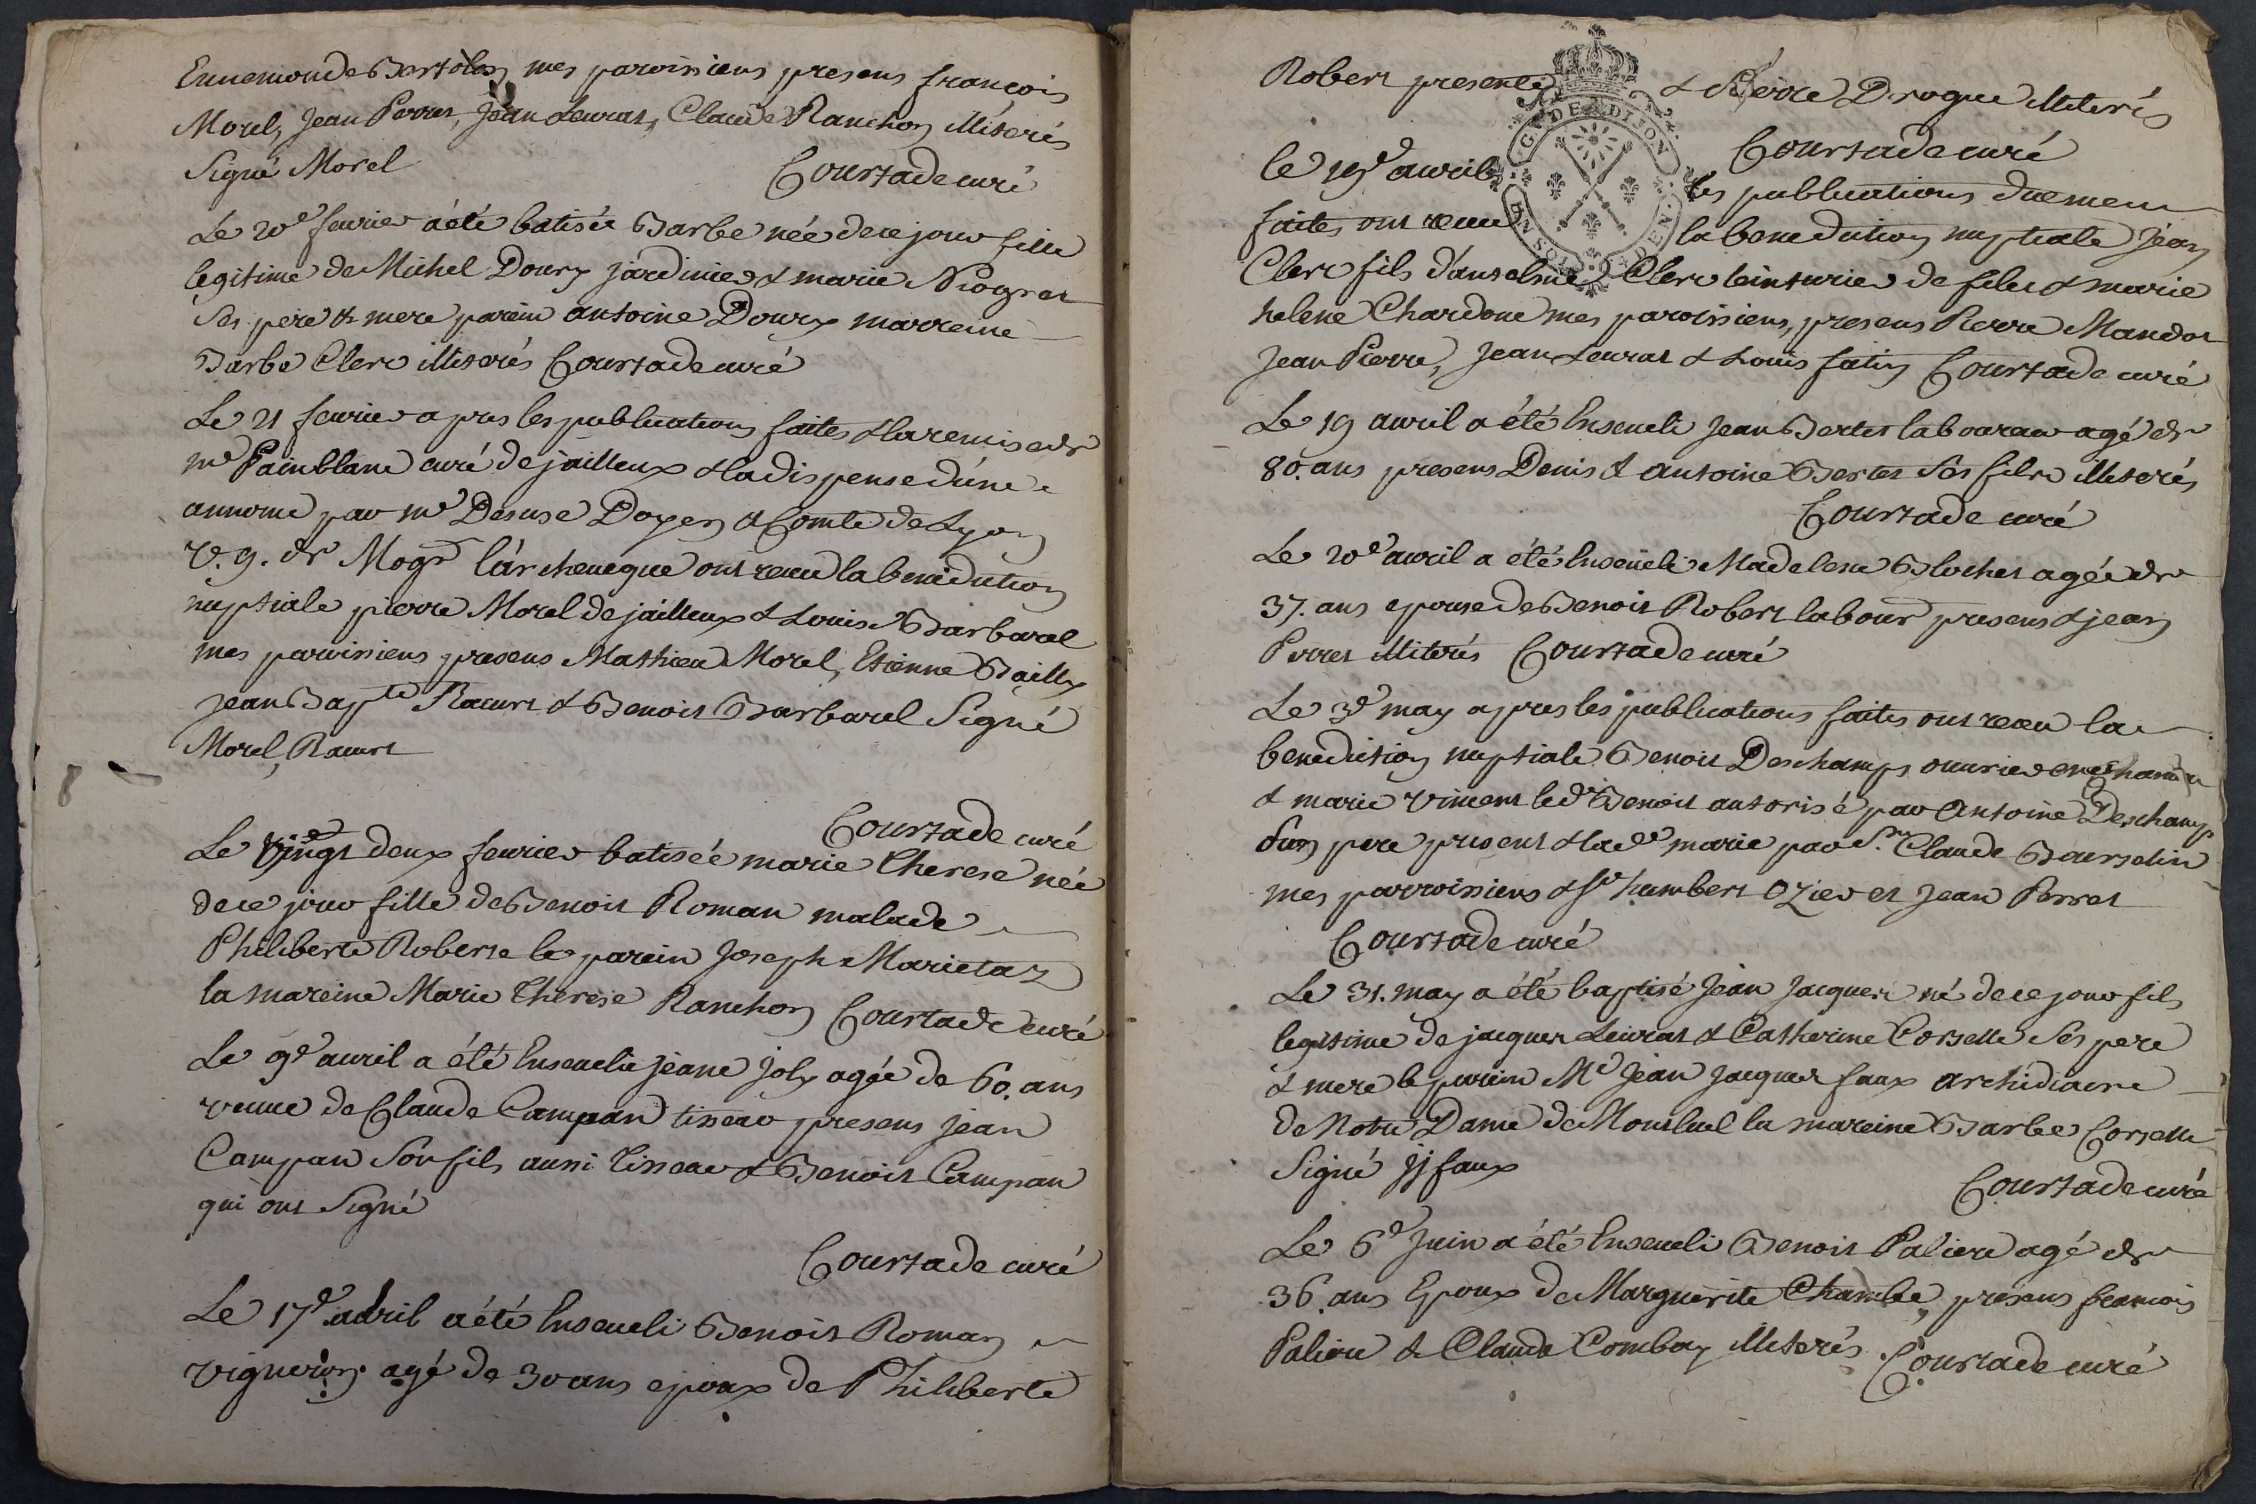 Ennemonde Bertolon mes paroissiens presens françois
Morel, Jean Perret, Jean Leurat, Claude Ranchon illiterés
Signé Morel Courtade curé
Le 20e feurier a été batisée Barbe née de ce jour fille
legitime de Michel Doury jardinier & marie Niogret
Ses pere & mere parein antoine Doury marreine
Barbe Clerc illiterés Courtade curé
Le 21 feurier apres les publications faites & la remise de
mr Painblanc curé de jailleux & la dispense d'une
annonce par mr Desuse Doyen & Comte de Lyon
V. g. de Mogr l'archeueque ont receu la benediction
nuptiale pierre Morel de jailleux & Louise Barbarel
mes paroissiens presens Mathieu Morel, Etienne Bailly
Jean Bapte Racurt & Benoit Barbarel Signé
Morel, Racurt
Courtade curé
Le Vingt deux feurier batisée marie Therese née
de ce jour fille de Benoit Roman malade
Philiberte Roberte le parein Joseph Marietaz
la mareine Marie Therese Ranchon Courtade curé
Le 9e auril a été Enseuelie jeane joly agée de 60. ans
veuue de Claude Campan tissear presens jean
Campan Son fils aussi tissear & Benoit Campan
qui ont Signé
Courtade curé
Le 17e avril a été Enseueli Benoit Roman
vigneron agé de 30 ans epoux de Philiberte
Robert presents & Pierre Drogue illiterés
Courtade curé
le 19e auril les publications duement
faites ont receu la benediction nuptiale jean
G. DE DIJON
Clerc fils d'anselme Clerc teinturier de files & marie
helene Chardone mes paroissiens, presens Pierre Mandot
Jean Pierre, Jean Leurat & Louis fatin Courtade curé
Le 19 auril a été Enseueli Jean Bertet laboureur agé de
80. ans presens Denis & antoine Bertet Ses fils illiterés
Courtade curé
Le 20e auril a été Enseueli Madelene Blochet agée de
37. ans epouse de Benoit Robert labour presens & jean
Perret illiterés Courtade curé
Le 3e may apres les publications faites ont receu la
benediction nuptiale Benoit Deschamps ouurier en
& marie vincent led Benoit autorisé par Antoine Deschamp
Son pere present & lade marie par Sr. Claude Bourselin
mes parroissiens & Sr humbert Ozier et Jean Perret
Courtade curé
Le 31. may a été baptisé Jean Jacques né de ce jour fils
legitime de jacques Leurat & Catherine Corselle Ses pere
& mere le parein Mr Jean Jacques faux archidiacre
de Notre Dame de Montluel la mareine Barbe Corselle
Signé JJ faux
Courtade curé
Le 6e juin a été Enseueli Benoit Paliere agé de
36. ans Epoux de Marguerite Chambe, presens francois
Paliere & Claude Combay illiterés. Courtade curé